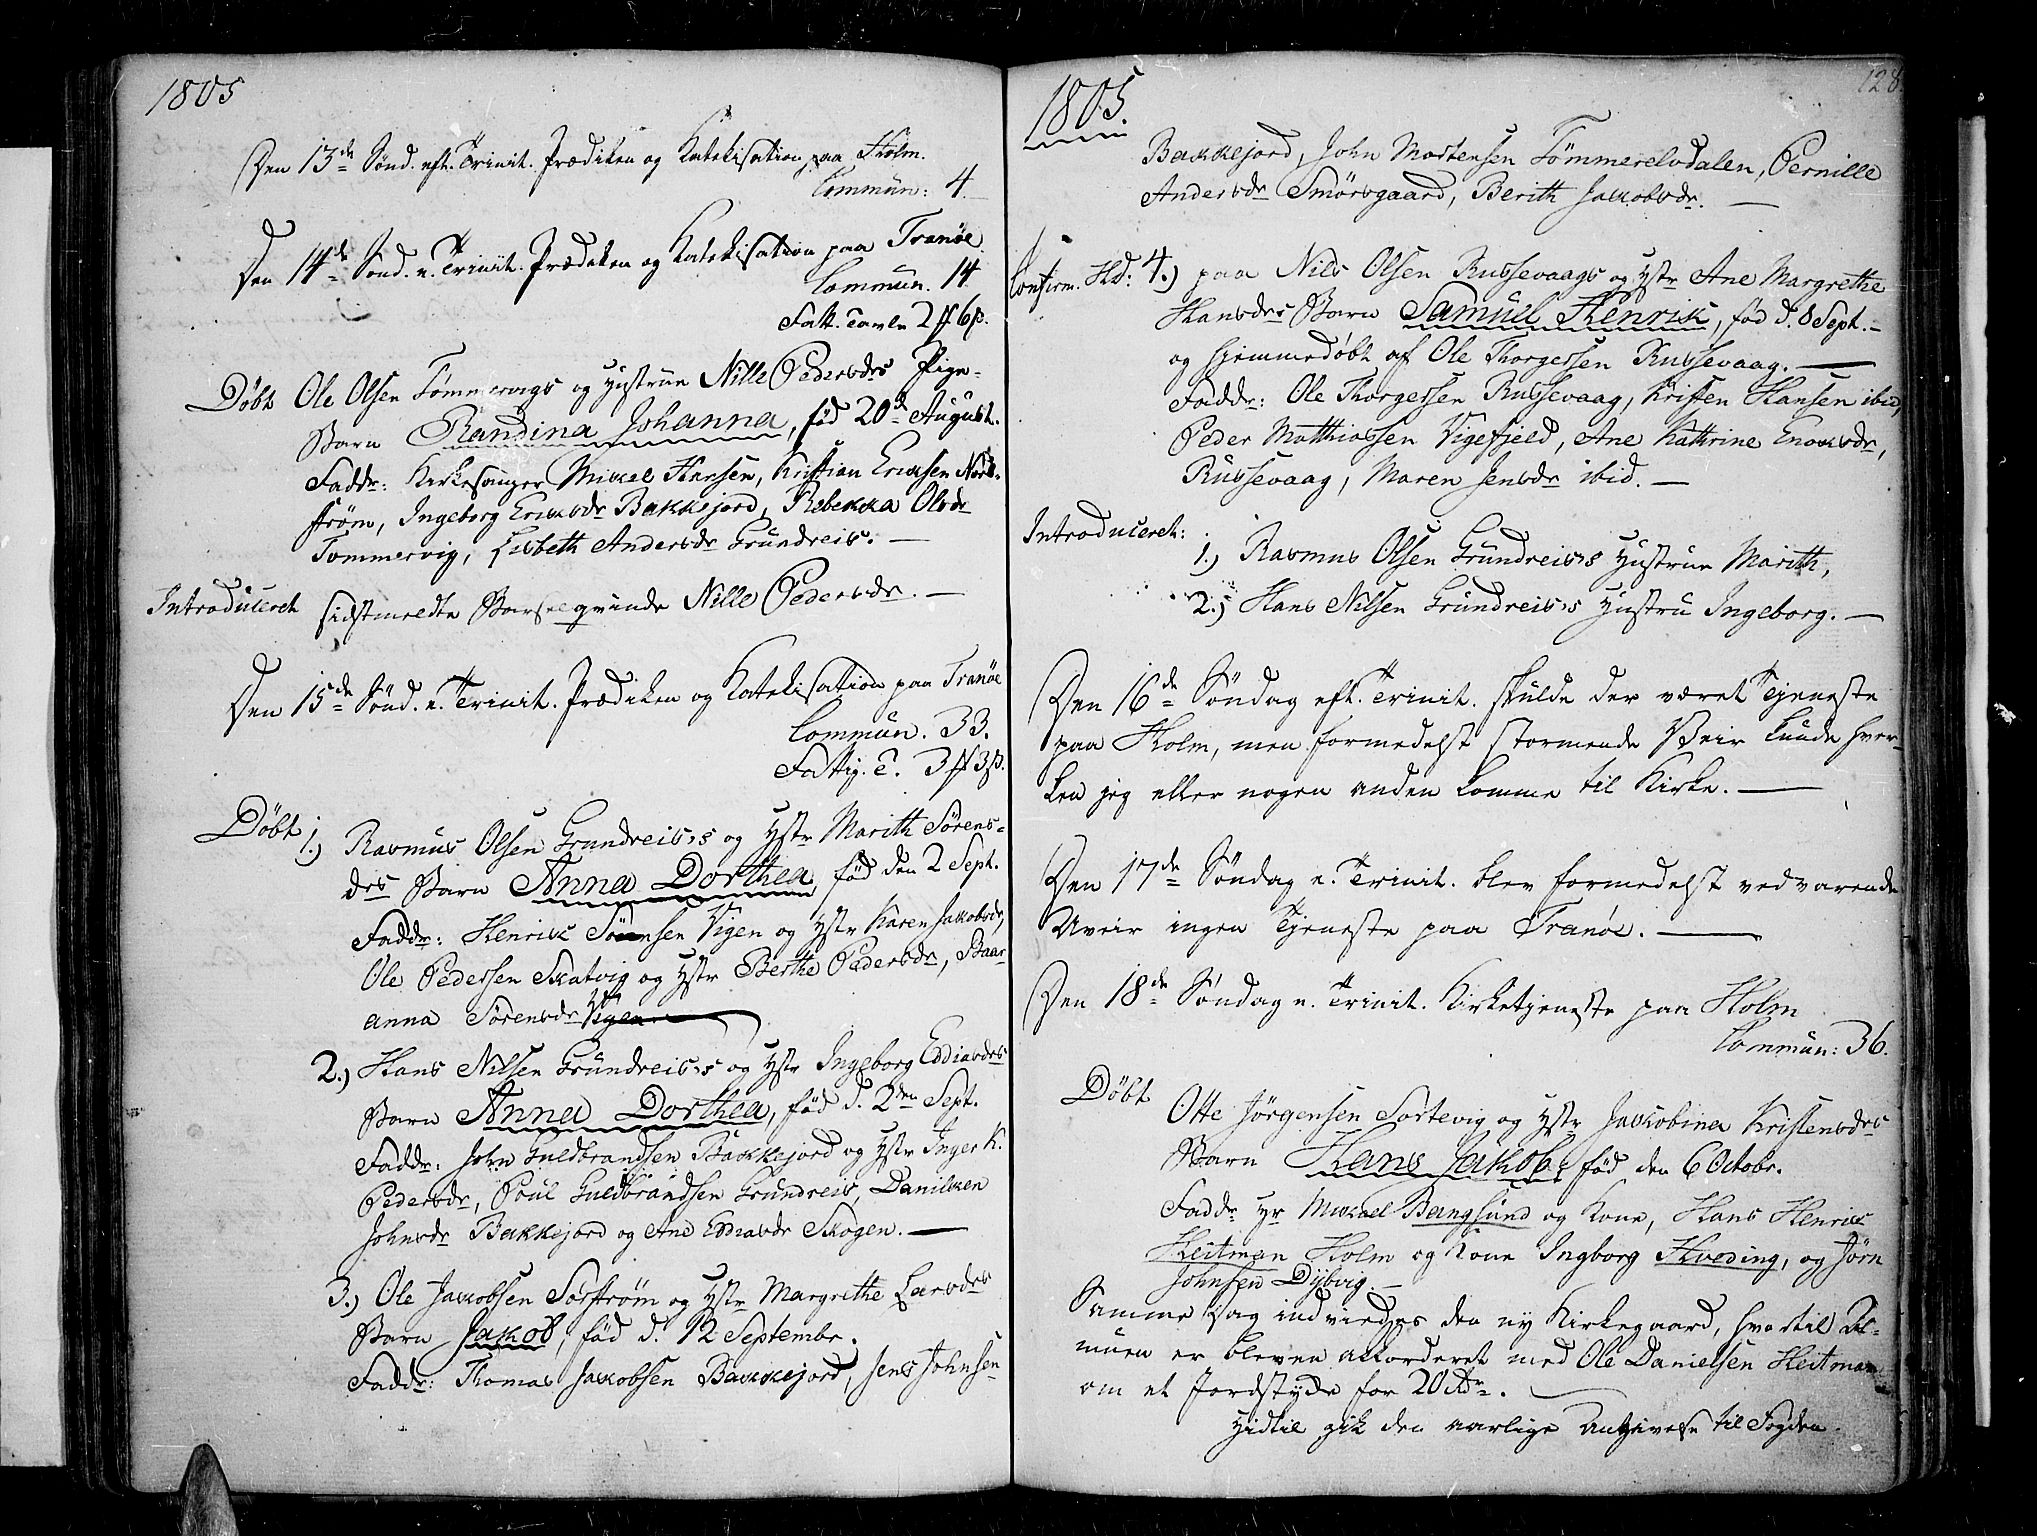 1805
Den 13de Sønd. eft. Trinit. Prædiken og Katekisation paa Holm.
Commun: 4.
Den 14de Sønd. e. Trinit. Prædiken og Katekisation paa Tranöe
Commun. 14
Fatt. Tavle 2 ℔ 6 ß.
Døbt Ole Olsen Tömmervigs og Hustrue Nille Pedersdrs Pige-
Barn Randina Johanna, född 20de August.
Faddr: Kirkesanger Mikel Hansen, Kristian Eriksen Nord-
strøm, Ingeborg Eriksdr Bakkejord, Rebekka Olsdr
Tommervig, Lisbeth Andersdr Grundreis. —
Introduceret sidstmeldte Barselqvinde Nille Pedersdr. —
Den 15de Sønd. e. Trinit. Prædiken og Katekisation paa Tranöe
Commun. 33.
Fattig. T. 3 ℔ 3 ß.
Døbt 1.) Rasmus Olsen Grundreis's og Hstr Marith Sörens-
drs Barn Anna Dorthea, föd den 2 Sept.
Faddr: Henrik Sörensen Vigen og Hstr Karen Jakobsdr,
Ole Pedersen Skatvig og Hstr Berthe Pedersdr, Baar
anna Sörensdr Vigen.
2.) Hans Nilsen Grundreis's og Hstr Ingeborg Eddiasdrs
Barn Anna Dorthea, föd d. 2den Sept.
Faddr: John Guldbrandsen Bakkejord og Hstr Inger K.
Pedersdr, Poul Guldbrandsen Grundreis, Danilken
Johnsdr Bakkejord og Ane Eddiasdr Skogen. —
3.) Ole Jakobsen Sörström og Hstr Margrethe Larsdrs
Barn Jakob, föd d. 12 Septembr.
Faddr: Thomas Jakobsen Bakkejord, Jens Johnsen
128.
1805.
Bakkejord, John Mortensen Tömmerelvdalen, Pernille
Andersdr Smörsgaard, Berith Jakobsdr. —
Confirm. Hd: 4.) paa Nils Olsen Russevaags og Hstr Ane Margrethe
Hansdrs Barn Samuel Henrik, föd d. 8 Sept. —
og hjemmedöbt af Ole Thorgersen Russevaag. —
Faddr: Ole Thorgersen Russevaag, Kristen Hansen ibid,
Peder Matthiassen Vigefjeld, Ane Kathrine Enoksdr,
Russevaag, Maren Jensdr ibid. —
Introduceret:
1.) Rasmus Olsen Grundreis's Hustrue Marith,
2.) Hans Nilsen Grundreis's Hustru Ingeborg. —
Den 16de Söndag eft. Trinit. skulde der været Tjeneste
paa Holm, men formedelst stormende Veir kunde hver-
ken jeg eller nogen anden komme til Kirke. —
Den 17de Söndag e. Trinit. blev formedelst vedvarende
Uveir ingen Tjeneste paa Tranöe. —
Den 18de Söndag e. Trinit. Kirketjeneste paa Holm
Commun: 36.
Döbt
Otte Jörgensen Sortevig og Hstr Jakobina Kristensdrs
Barn Hans Jakob, föd den 6 Octobr.
Faddr Hr Mikael Bangsund og Kone, Hans Henrik
Heitman Holm og Kone Ingborg Hveding, og Jörn
Johnsen Dybvig. —
Samme Dag indviedes den ny Kirkegaard, hvortil Al-
muen er bleven akkorderet med Ole Danielsen Heitman
om et Jordstyde for 20 Rdr. —
Hidtil gik den aarlige Angivelse til Fogden.